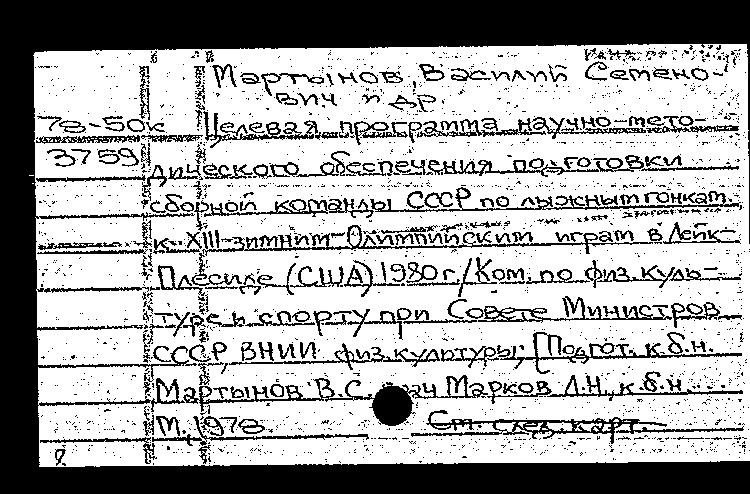 Мартынов, Василий Семено-
вич и др.
78-50к Целевая программа научно-мето-
3759 дического обеспечения подготовки
сборной команды СССР по лыжным гонкам
к XIII зимним Олимпийским играм в Лейк-
Плесиде (США) 1980 г./Ком. по физ. куль-
туре и спорту при Совете Министров
СССР, ВНИИ физ. культуры; [Подгот. к.б.н.
Мартынов В.С., врач Марков Л.Н., к.б.н. ...
М., 1978.
См. след. карт.